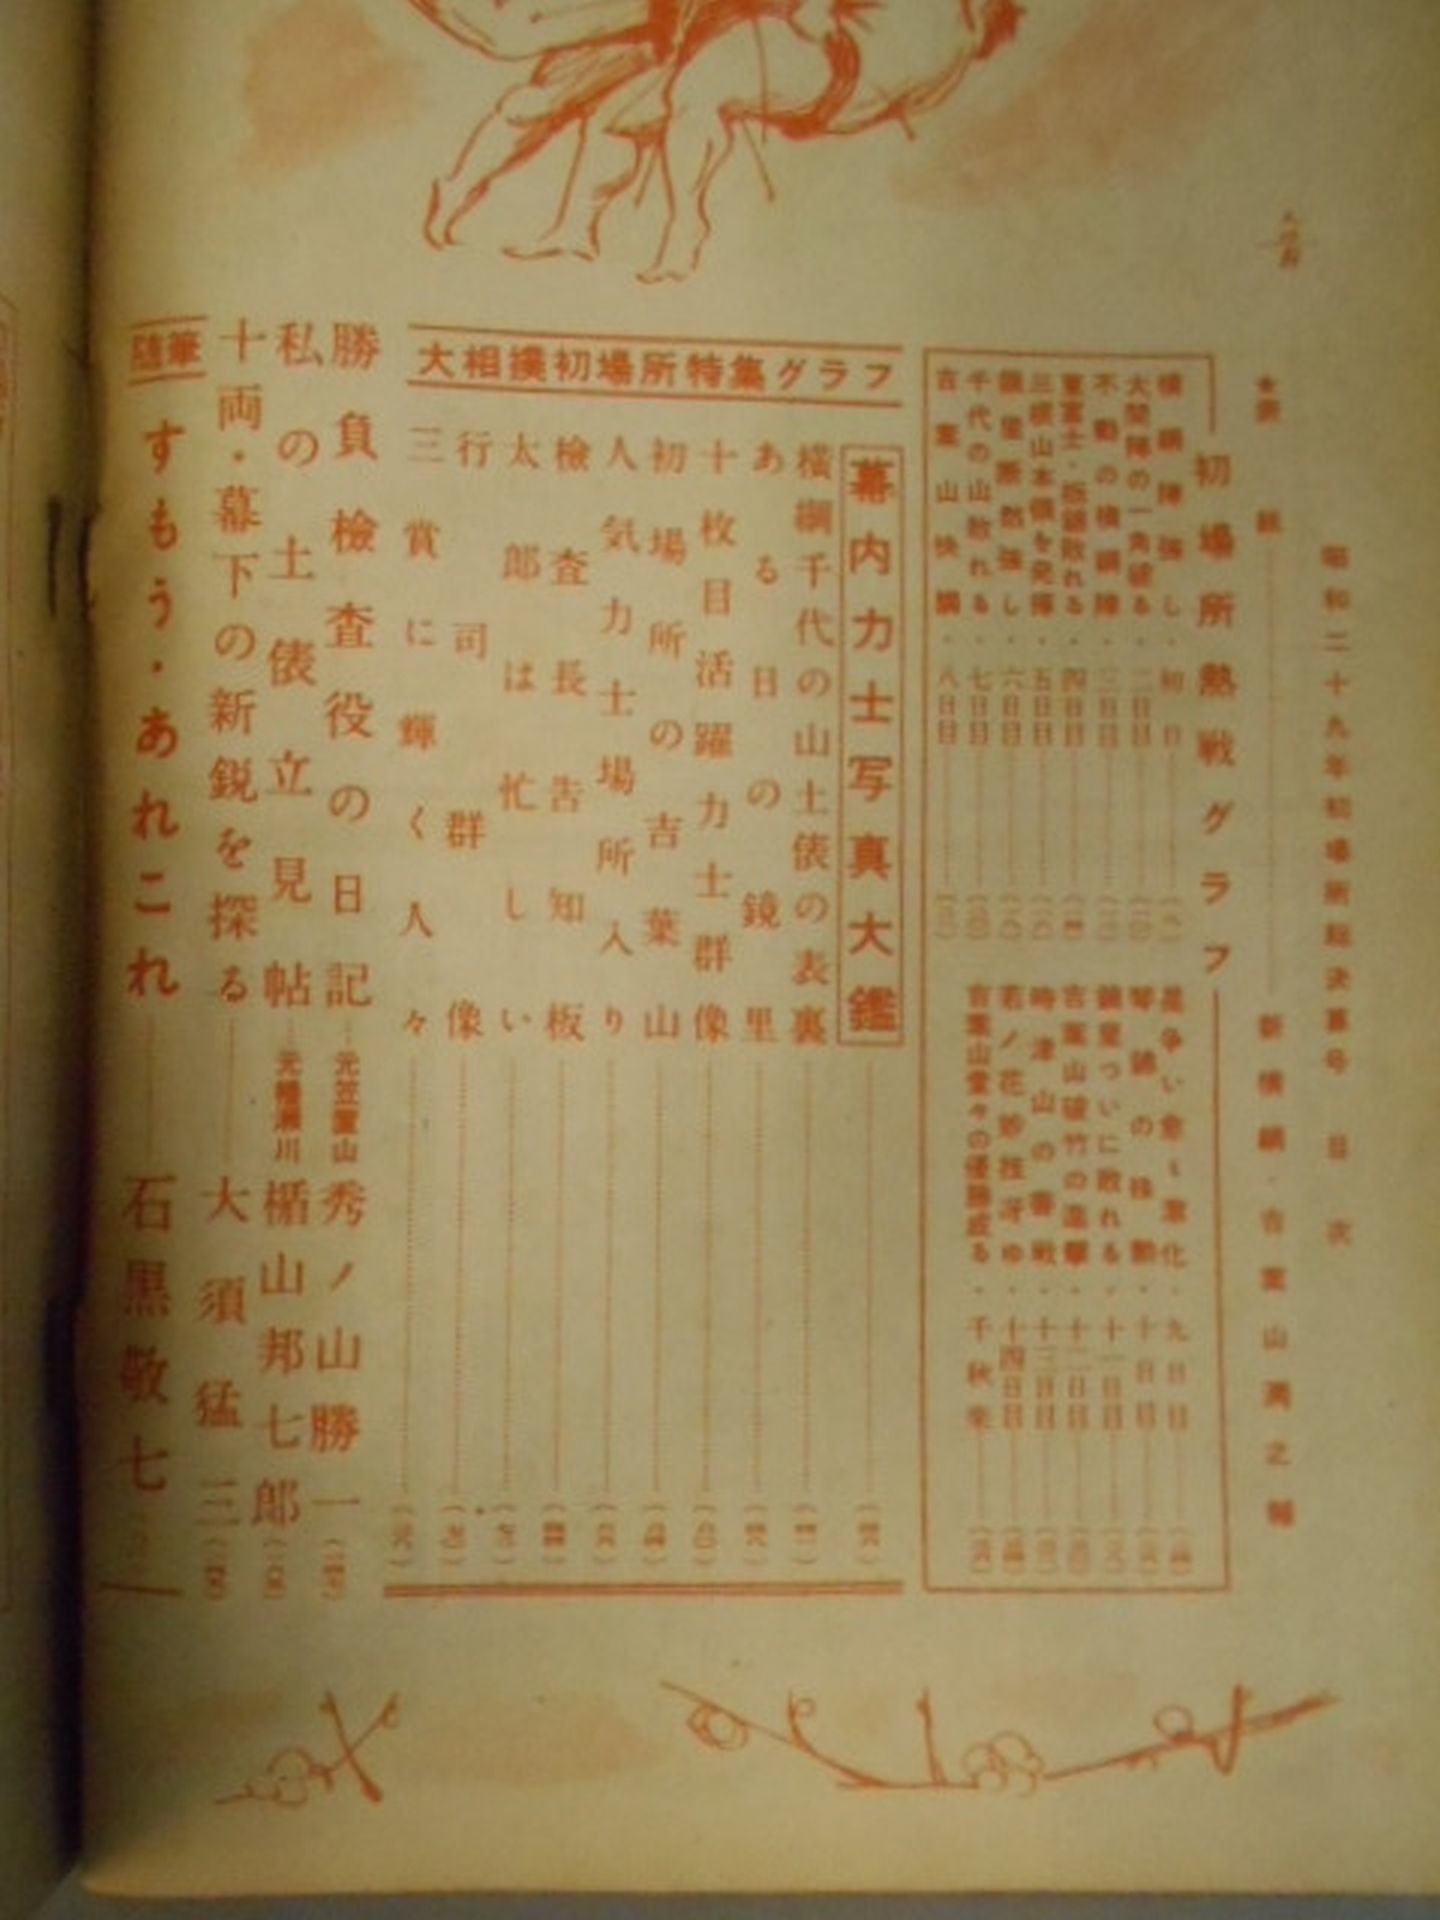 昭和二十九年初場所総決算号 目次
表紙 新横綱・吉葉山潤之輔
初場所熱戦グラフ
横綱陣強し・初日
大関陣の一角破る・二日目
不動の横綱陣・三日目
東富士・栃錦敗れる・四日目
三根山本領を発揮・五日目
・六日目
千代の山敗れる・七日目
吉葉山快調・八日目
星争い愈々激化・九日目
琴錦の殊勲・十日目
鏡里ついに敗れる・十一日目
吉葉山破竹の進撃・十二日目
時津山の善戦・十三日目
若ノ花妙技冴ゆ・十四日目
吉葉山堂々の優勝成る・千秋楽
大相撲初場所特集グラフ
幕内力士写真大鑑
横綱千代の山土俵の表裏
ある日の鏡里
十枚目活躍力士群像
初場所の吉葉山
人気力士場所入り
檢査長告知板
太郎は忙しい
行司群像
三賞に輝く人々
勝負檢査役の日記 元笠置山 秀ノ山勝一
私の土俵立見帖 元幡瀬川 楯山邦七郎
十両・幕下の新鋭を探る 大須猛三
隨筆 すもう・あれこれ 石黒敬七